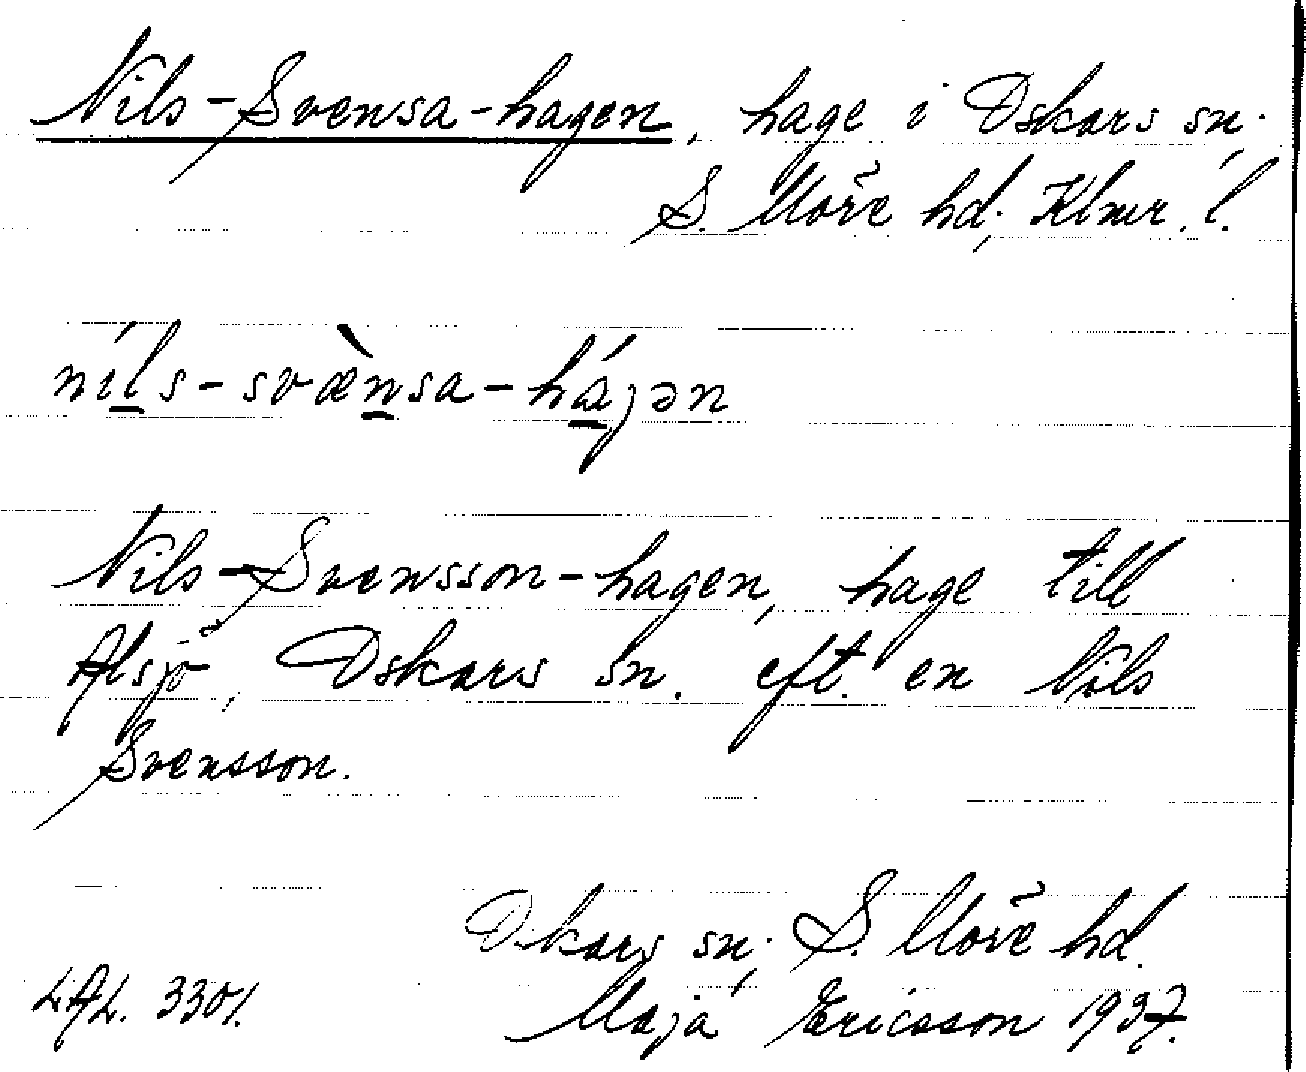 Nils-Svensa-hagen, hage i Oskars sn.
S. Möre hd, Klmr. l.
níls-svæ̀nsa-hágən
Nils-Svensson-hagen, hage till
Alsjö, Oskars sn. eft. en Nils
Svensson.
Oskars sn, S. Möre hd.
LAL. 3301. Maja Ericsson 1937.